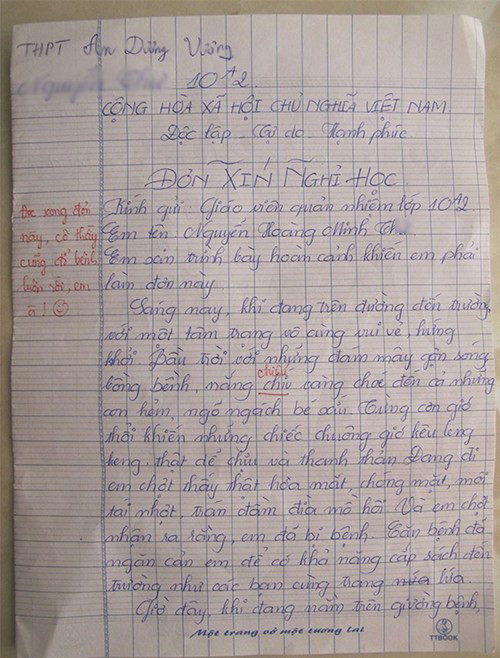 THPT An Dương Vương
10A2
CỘNG HÒA XÃ HỘI CHỦ NGHĨA VIỆT NAM
Độc lập - Tự do - Hạnh phúc
ĐƠN XIN NGHỈ HỌC
Kính gửi: Giáo viên quản nhiệm lớp 10A2
Em tên: Nguyễn Hoàng Minh Th
Em xin trình bày hoàn cảnh khiến em phải
làm đơn này.
Sáng nay, khi đang trên đường đến trường,
với một tâm trạng vô cùng vui vẻ, hứng
khởi. Bầu trời với những đám mây gợn sóng
bồng bềnh, nắng chíu vàng choé đến cả những
chiếu
con hẻm, ngó ngách bé xíu. Từng cơn gió
thổi khiến những chiếc chuông gió kêu leng
keng thật dễ chịu và thanh thản. Đang đi
em chợt thấy thật hoa mắt, chóng mặt, môi
tái nhợt, trán đầm đìa mồ hôi. Và em chợt
nhận ra rằng, em đã bị bệnh. Căn bệnh đã
ngăn cản em để có khả năng cắp sách đến
trường như các bạn cùng trang lứa
Giờ đây, khi đang nằm trên giường bệnh,
Đọc xong đơn
này, cô thấy
cũng đổ bệnh
luôn rồi, em
ạ!
Một trang vở một tương lai
TTBOOK